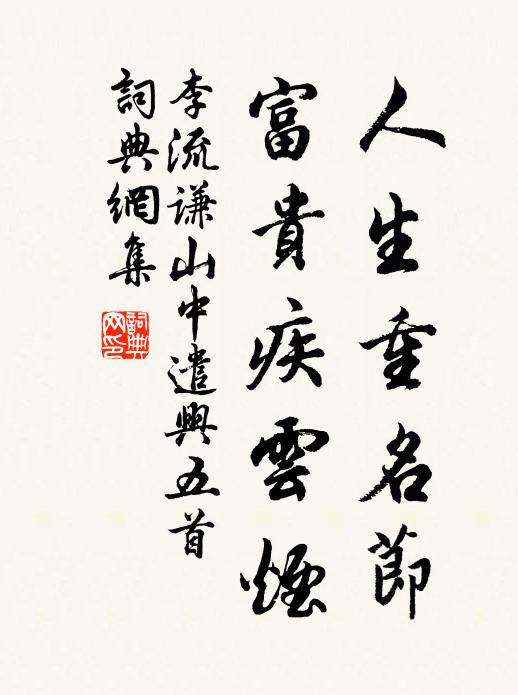 人生重名節
富貴疾雲煙
李流謙山中遣興五首
詞典網集
詞典网印